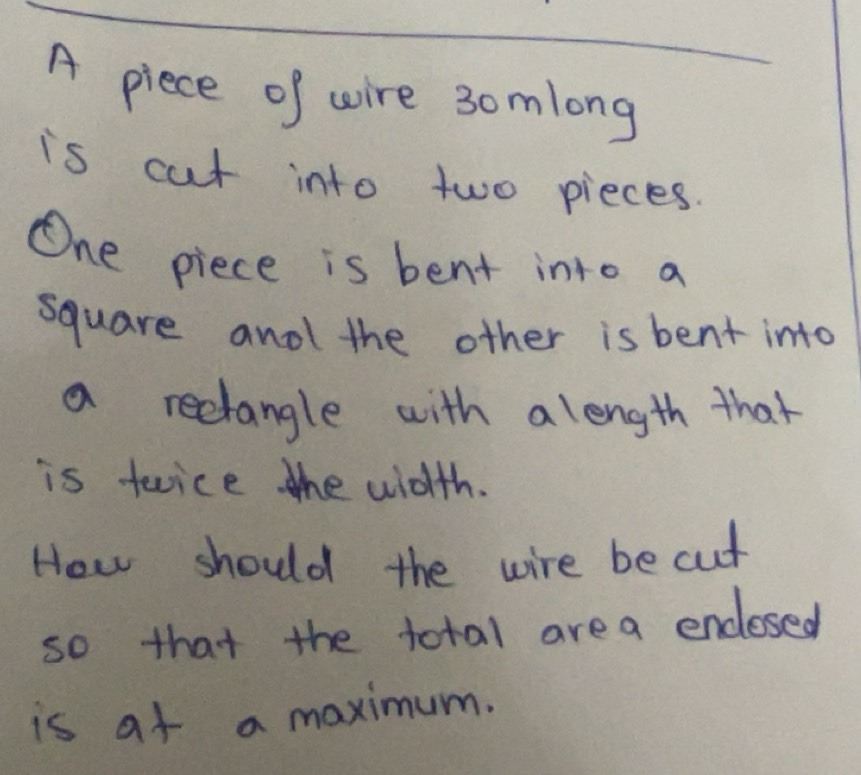 A piece of wire 30m long
is cut into two pieces.
One piece is bent into a
square and the other is bent into
a rectangle with a length that
is twice the width.
How should the wire be cut
so that the total area enclosed
is at a maximum.